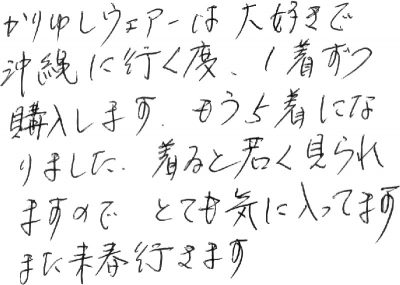 かりゆしウェアーは大好きで
沖縄に行く度、1着ずつ
購入します。もう5着にな
りました。着ると若く見られ
ますので とても気に入ってます
また来春行きます